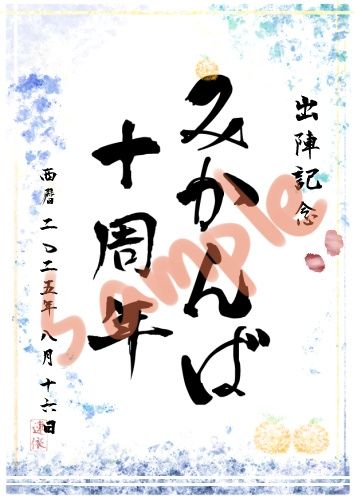 出陣記念
みかんば
十周年
西暦二〇二五年八月十六日
sample